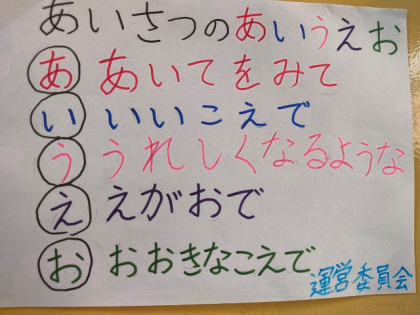 あいさつのあいうえお
あ あいてをみて
い いいこえで
う うれしくなるような
え えがおで
お おおきなこえで
運営委員会